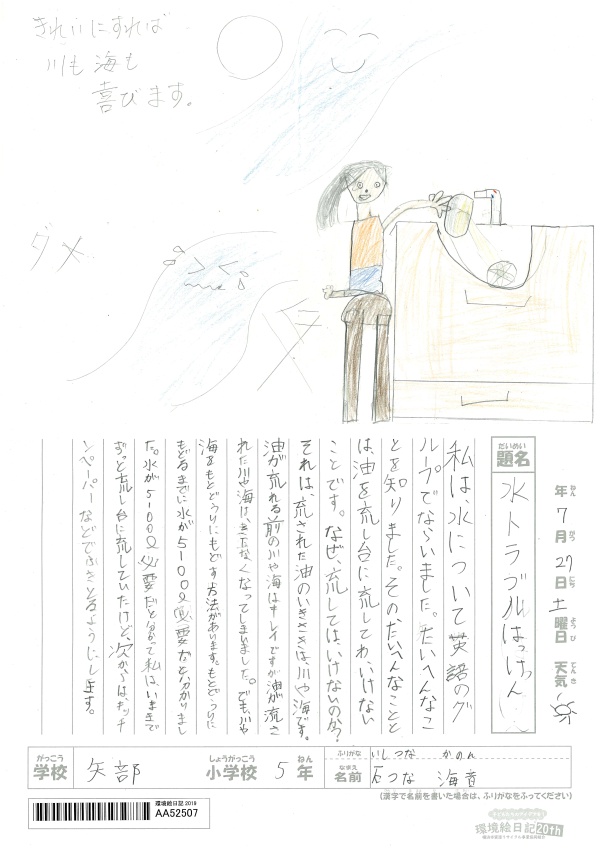 きれいにすれば
川も海も
喜びます。
ダメ
年 7月 27日 土曜日 天気
ねん がつ にち ようび てんき
だいめい
題名
水トラブルはっけん
私は、水について英語のグ
ループでならいました。たいへんなこ
とを知りました。そのたいへんなことと
は、油を流し台に流してわ、いけない
ことです。なぜ、流してしは、いけないのか?
それは、流された油のいきさきは、川や海です。
油が流れる前の川や海はキレイですが油が流さ
れた川や海は、きたなくなってしまいました。でも、川や
海をもとどうりにもどす方法があります。もとどうりに
もどるまでに水が5100ℓ必要だと分かりまし
た。水が5100ℓ必要だと分かって私は、いままで
ずっと流し台に流していたけど、次からは、キッチ
ンペーパーなどでふきとるようにします。
がっこう
学校 矢部
しょうがっこう
小学校 5 ねん
年
ふりがな いしつな かのん
なまえ
名前 石つな 海音
(漢字で名前を書いた場合は、ふりがなをふってください)
環境絵日記2019
AA52507
環境絵日記20th